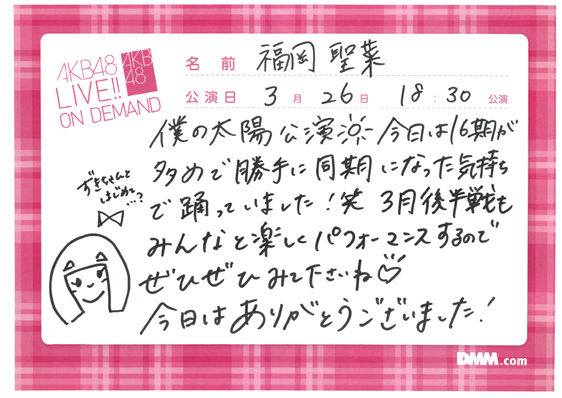 AKB48
LIVE!!
ON DEMAND
AKB
48
名前 福岡 聖菜
公演日 3月 26日 18:30 公演
僕の太陽公演☼ 今日は16期が
多めで勝手に同期になった気持ち
で踊っていました!笑 3月後半戦も
みんなと楽しくパフォーマンスするので
ぜひぜひみて下さいね♡
今日はありがとうございました!
ずきちゃんと
はじめて…?
DMM.com